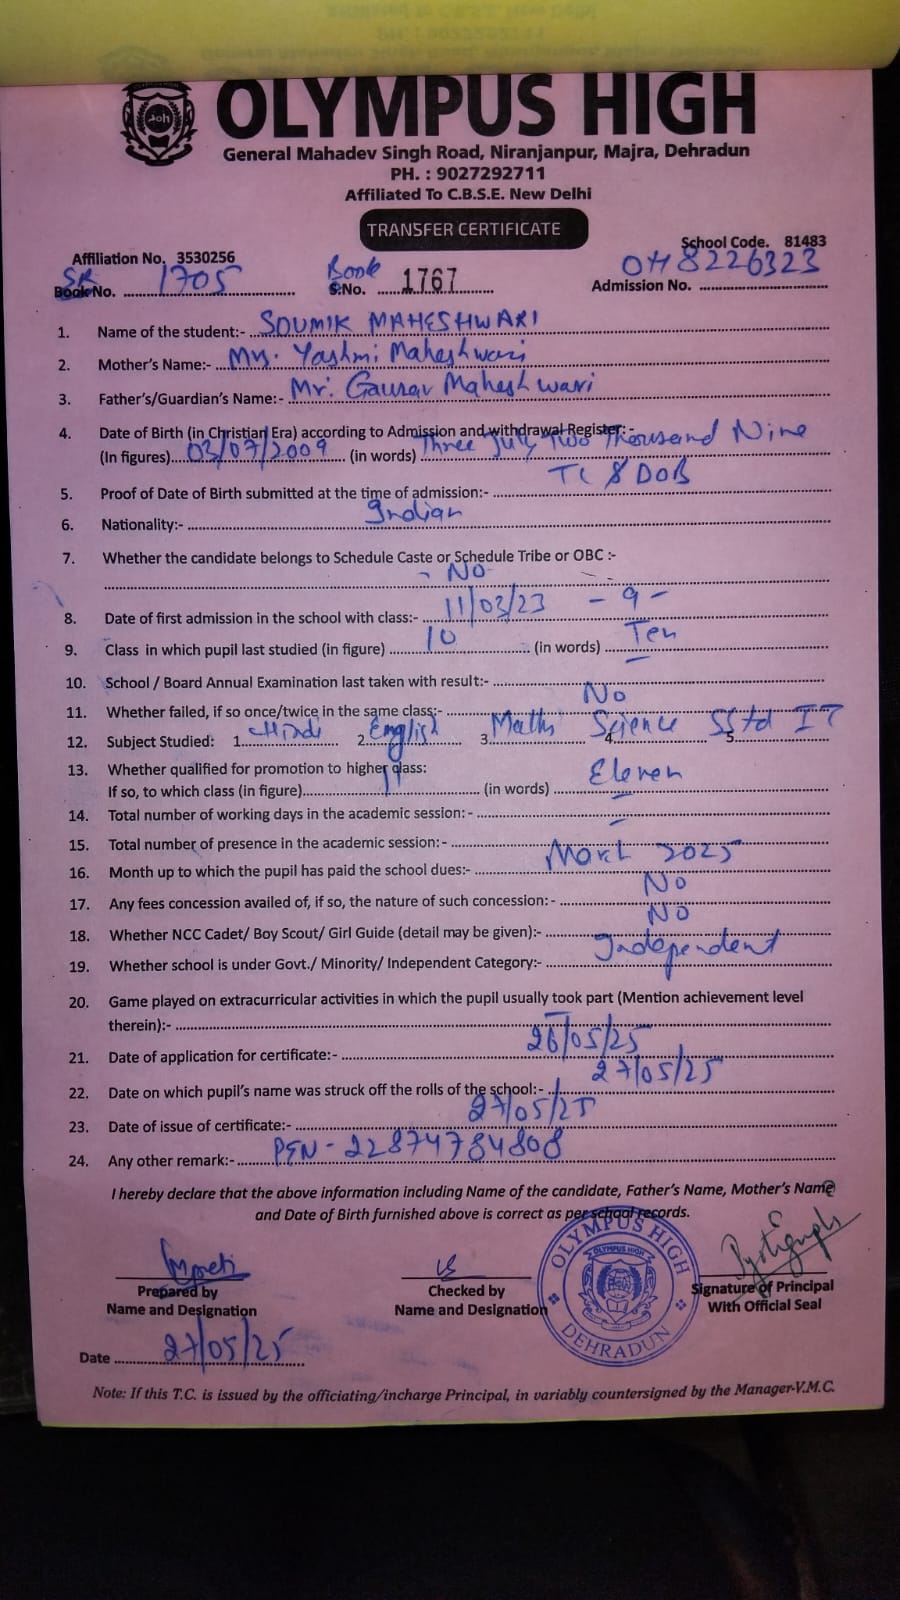 OLYMPUS HIGH
General Mahadev Singh Road, Niranjanpur, Majra, Dehradun
PH. : 9027292711
Affiliated To C.B.S.E. New Delhi
TRANSFER CERTIFICATE
Affiliation No. 3530256 School Code. 81483
SR Book No. 1705 Book S.No. 1767 Admission No. OH8226323
1. Name of the student:- SOUMIK MAHESHWARI
2. Mother's Name:- Mrs. Yashmi Maheshwari
3. Father's/Guardian's Name:- Mr. Gaurav Maheshwari
4. Date of Birth (in Christian Era) according to Admission and withdrawal Register:-
(In figures) 03/07/2009 (in words) Three July Two Thousand Nine
5. Proof of Date of Birth submitted at the time of admission:- TC & DOB
6. Nationality:- Indian
7. Whether the candidate belongs to Schedule Caste or Schedule Tribe or OBC :-
- No -
8. Date of first admission in the school with class:- 11/03/23 - 9 -
9. Class in which pupil last studied (in figure) 10 (in words) Ten
10. School / Board Annual Examination last taken with result:- –
11. Whether failed, if so once/twice in the same class:- No
12. Subject Studied: 1. Hindi 2. English 3. Maths 4. Science 5. SStd IT
13. Whether qualified for promotion to higher class:
If so, to which class (in figure) 11 (in words) Eleven
14. Total number of working days in the academic session: - –
15. Total number of presence in the academic session:- –
16. Month up to which the pupil has paid the school dues:- March 2025
17. Any fees concession availed of, if so, the nature of such concession:- No
18. Whether NCC Cadet/ Boy Scout/ Girl Guide (detail may be given):- No
19. Whether school is under Govt./ Minority/ Independent Category:- Independent
20. Game played on extracurricular activities in which the pupil usually took part (Mention achievement level
therein):- –
21. Date of application for certificate:- 26/05/25
22. Date on which pupil's name was struck off the rolls of the school:- 27/05/25
23. Date of issue of certificate:- 27/05/25
24. Any other remark:- PEN - 22874784808
I hereby declare that the above information including Name of the candidate, Father's Name, Mother's Name
and Date of Birth furnished above is correct as per school records.
OLYMPUS HIGH
DEHRADUN
Prepared by Checked by Signature of Principal
Name and Designation Name and Designation With Official Seal
Date 27/05/25
Note: If this T.C. is issued by the officiating/incharge Principal, in variably countersigned by the Manager-V.M.C.